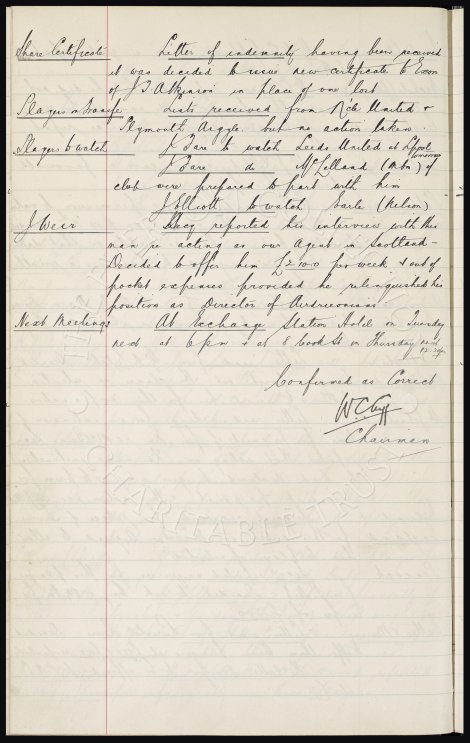 Share Certificate Letter of indemnity having been received
it was decided to issue new certificate to Exors
of J.T. Atkinson in place of one lost
Players on Transfer Lists received from N'cle United &
Plymouth Argyle but no action taken.
Players to watch J. Fare to watch Leeds United at L'pool
J Fare do McLelland (Mbro) if tomorrow
club were prepared to part with him
J Elliott to watch Earle (Nelson)
J Weir Secy reported his interview with this
man re acting as our agent in Scotland –
Decided to offer him £2-10-0 per week & out of
pocket expenses provided he relinquished his
position as Director of Airdrieonians
Next Meetings At Exchange Station Hotel on Tuesday
next at 6 pm & at 8 Cook St on Thursday next
Confirmed as Correct
W.C. Cuff
Chairman
CHARITABLE TRUST